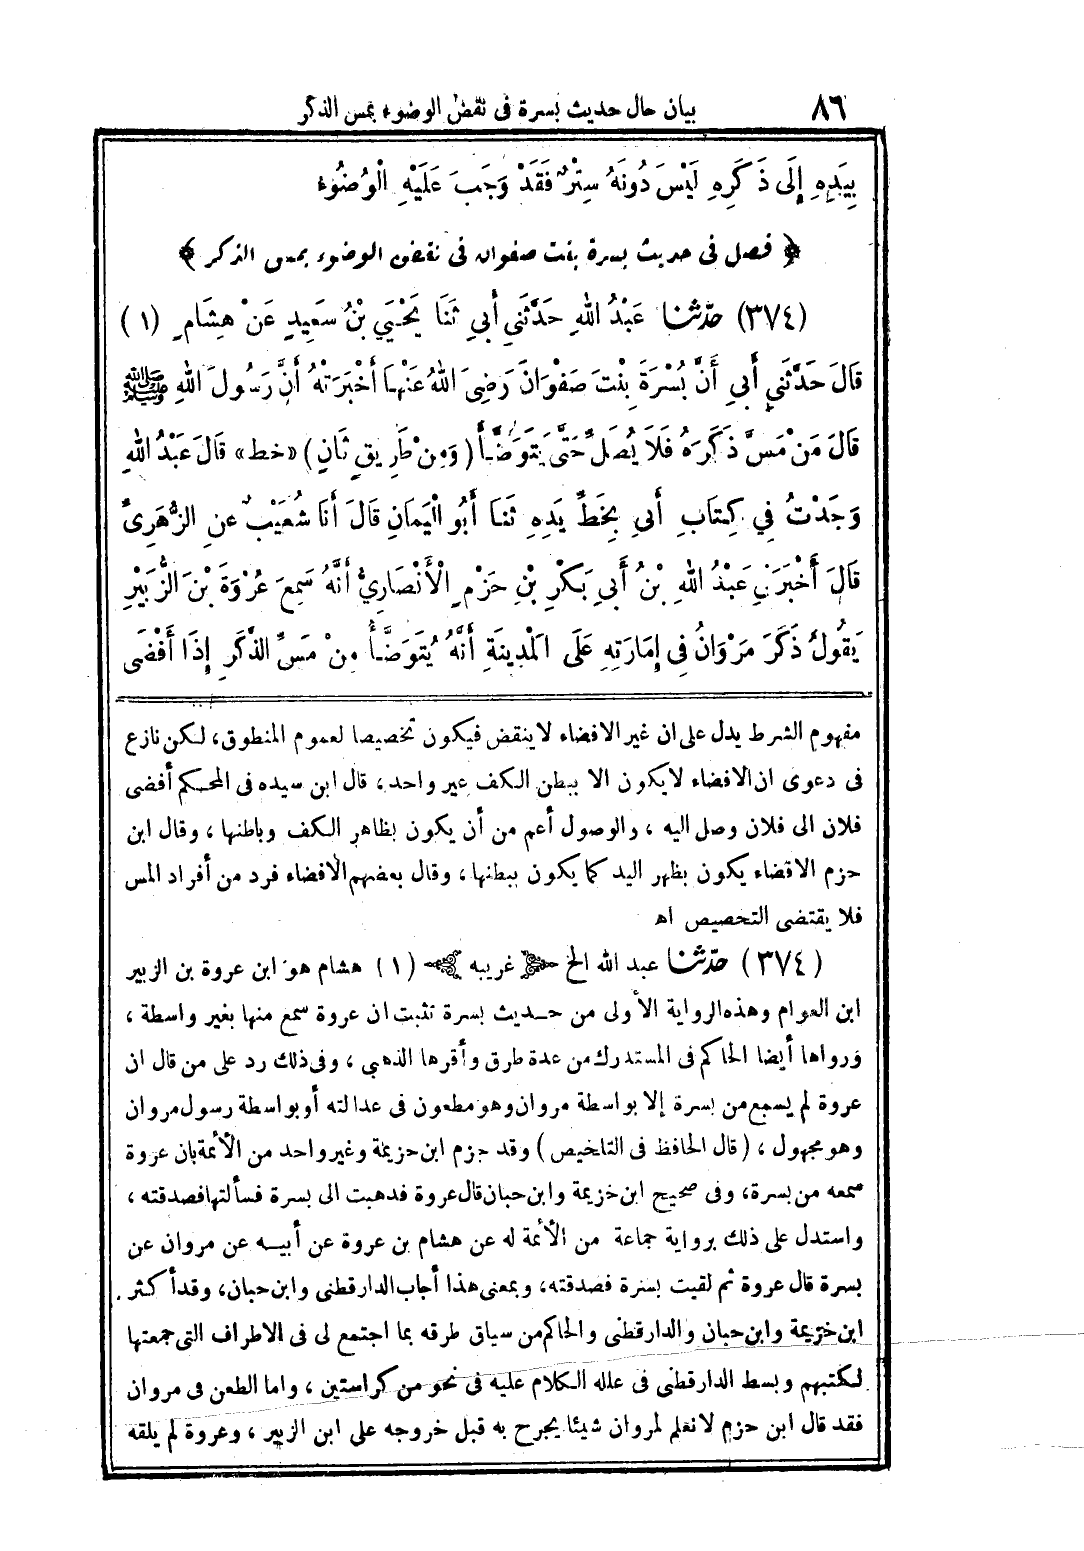 ٨٦ بيان حال حديث بسرة فى نقض الوضوء بمس الذكر
بِيَدِهِ إِلَى ذَكَرِهِ لَيْسَ دُونَهُ سِتْرٌ فَقَدْ وَجَبَ عَلَيْهِ الْوُضُوءُ
﴿ فصل فى حديث بسرة بنت صفوان فى نقض الوضوء بمس الذكر ﴾
(٣٧٤) حدّثنا عَبْدُ اللهِ حَدَّثَنِي أَبِي ثَنَا يَحْيَي بْنُ سَعِيدٍ عَنْ هِشَامٍ (١)
قَالَ حَدَّثَنِي أَبِي أَنَّ بُسْرَةَ بِنْتَ صَفْوَانَ رَضِىَ اللهُ عَنْهَا أَخْبَرَتْهُ أَنَّ رَسُولَ اللهِ ﷺ
قَالَ مَنْ مَسَّ ذَكَرَهُ فَلَا يُصَلِّ حَتَّى يَتَوَضَّأَ (وَمِنْ طَرِيقٍ ثَانٍ) «خط» قَالَ عَبْدُ اللهِ
وَجَدْتُ فِي كِتَابِ أَبِي بِخَطِّ يَدِهِ ثَنَا أَبُو الْيَمَانِ قَالَ أَنَا شُعَيْبٌ عَنِ الزُّهَرِىِّ
قَالَ أَخْبَرَنِي عَبْدُ اللهِ بْنُ أَبِي بَكْرِ بْنِ حَزْمٍ الْأَنْصَارِيُّ أَنَّهُ سَمِعَ عُرْوَةَ بْنَ الزُّبَيْرِ
يَقُولُ ذَكَرَ مَرْوَانُ فِى إِمَارَتِهِ عَلَى الْمَدِينَةِ أَنَّهُ يُتَوَضَّأُ مِنْ مَسِّ الذَّكَرِ إِذَا أَفْضَى
مفهوم الشرط يدل على ان غير الافضاء لاينقض فيكون تخصيصا لعموم المنطوق، لكن نازع
فى دعوى ان الافضاء لايكون الا ببطن الكف غير واحد، قال ابن سيده فى المحكم أفضى
فلان الى فلان وصل اليه ، والوصول أعم من أن يكون بظاهر الكف وباطنها ، وقال ابن
حزم الافضاء يكون بظهر اليد كما يكون ببطنها، وقال بعضهم الافضاء فرد من أفراد المس
فلا يقتضى التخصيص اه
(٣٧٤) حدّثنا عبد الله الخ غريبه (١) هشام هو ابن عروة بن الزبير
ابن العوام وهذه الرواية الأولى من حديث بسرة تثبت ان عروة سمع منها بغير واسطة ،
ورواها أيضا الحاكم فى المستدرك من عدة طرق وأقرها الذهبي ، وفى ذلك رد على من قال ان
عروة لم يسمع من بسرة إلا بواسطة مروان وهو مطعون فى عدالته أو بواسطة رسول مروان
وهو مجهول ، (قال الحافظ فى التلخيص) وقد جزم ابن خزيمة وغير واحد من الأئمة بان عروة
سمعه من بسرة، وفى صحيح ابن خزيمة وابن حبان قال عروة فذهبت الى بسرة فسألتها فصدقته ،
واستدل على ذلك برواية جماعة من الأئمة له عن هشام بن عروة عن أبيه عن مروان عن
بسرة قال عروة ثم لقيت بسرة فصدقته، وبمعنى هذا أجاب الدارقطنى وابن حبان، وقد أكثر
ابن خزيمة وابن حبان والدارقطنى والحاكم من سياق طرقه بما اجتمع لى فى الاطراف التى جمعتها
لكتبهم وبسط الدارقطنى فى علله الكلام عليه فى نحو من كراستين ، واما الطعن فى مروان
فقد قال ابن حزم لا نعلم لمروان شيئا يجرح به قبل خروجه على ابن الزبير ، وعروة لم يلقه